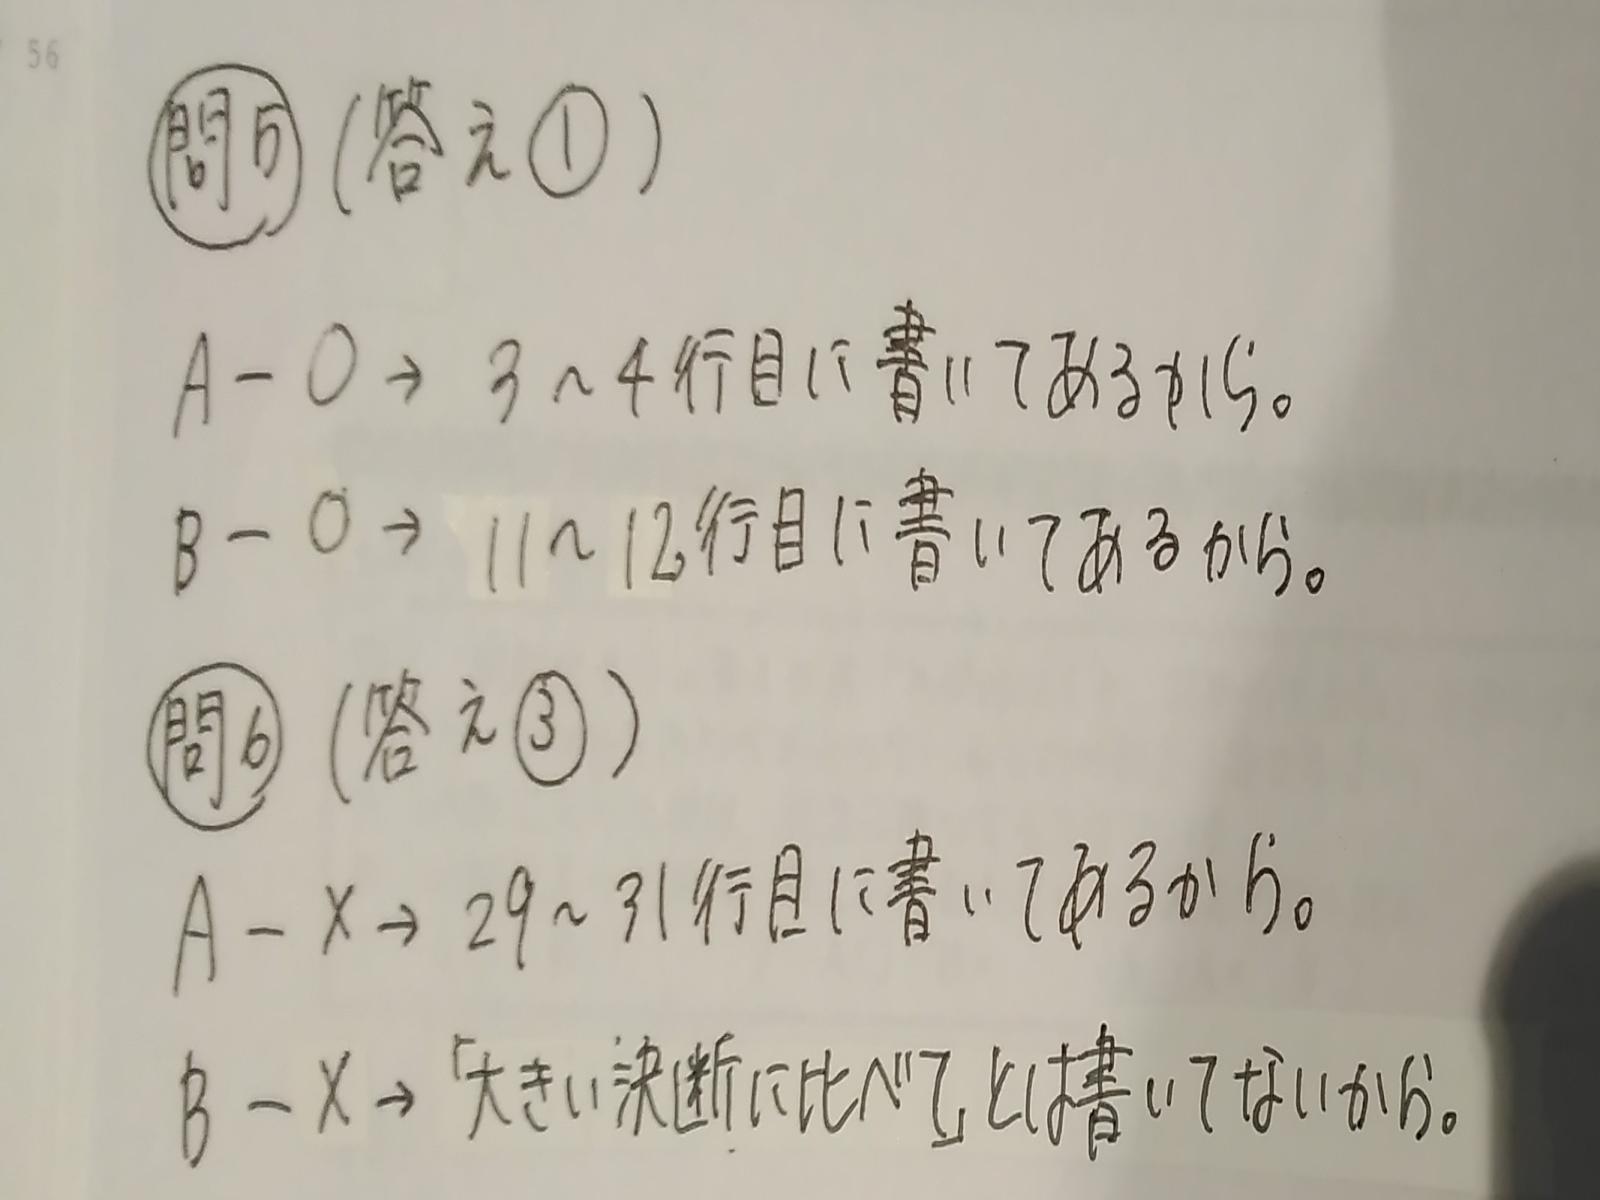 56
問5 (答え①)
A－○→ 3～4行目に書いてあるから。
B－○→ 11～12行目に書いてあるから。
問6 (答え③)
A－×→ 29～31行目に書いてあるから。
B－×→「大きい決断に比べて」とは書いてないから。